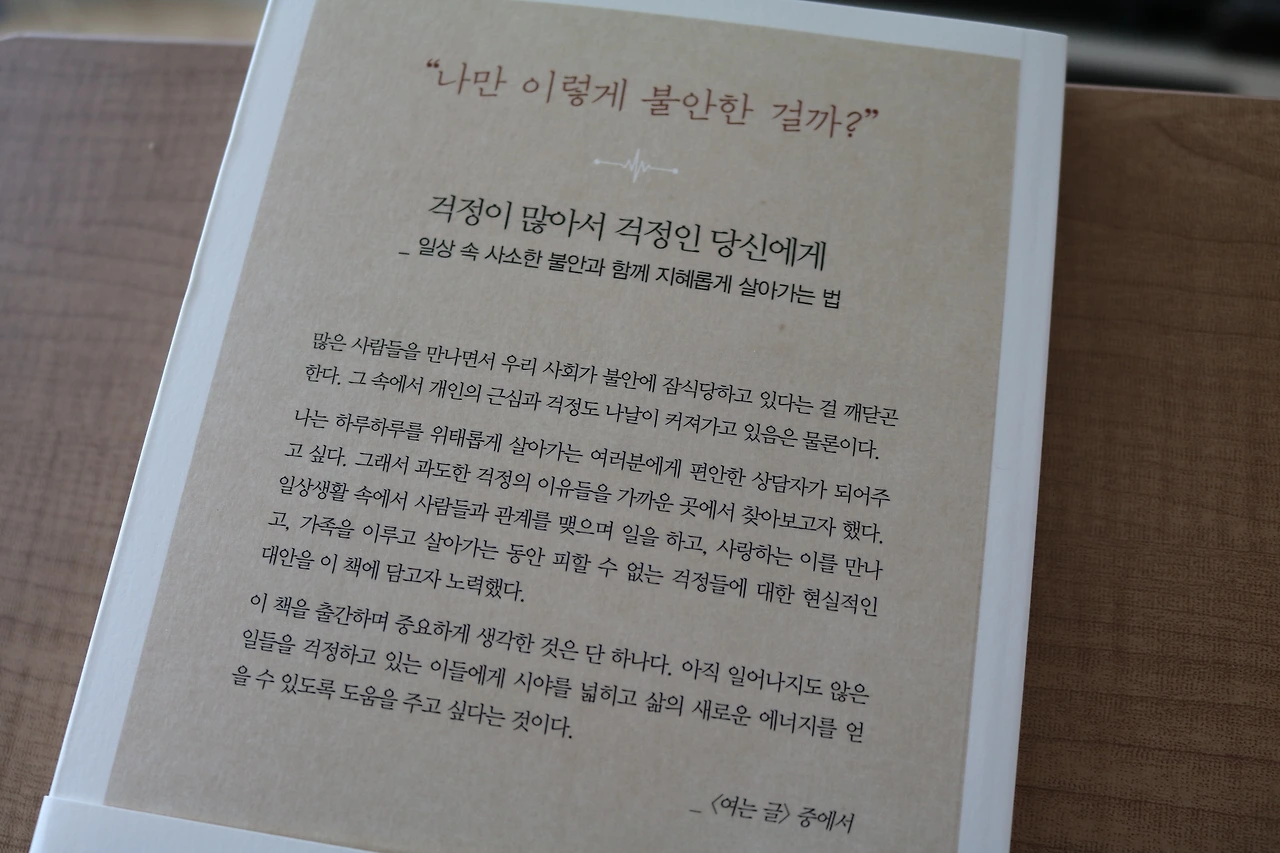 “나만 이렇게 불안한 걸까?”
걱정이 많아서 걱정인 당신에게
_ 일상 속 사소한 불안과 함께 지혜롭게 살아가는 법
많은 사람들을 만나면서 우리 사회가 불안에 잠식당하고 있다는 걸 깨닫곤
한다. 그 속에서 개인의 근심과 걱정도 나날이 커져가고 있음은 물론이다.
나는 하루하루를 위태롭게 살아가는 여러분에게 편안한 상담자가 되어주
고 싶다. 그래서 과도한 걱정의 이유들을 가까운 곳에서 찾아보고자 했다.
일상생활 속에서 사람들과 관계를 맺으며 일을 하고, 사랑하는 이를 만나
고, 가족을 이루고 살아가는 동안 피할 수 없는 걱정들에 대한 현실적인
대안을 이 책에 담고자 노력했다.
이 책을 출간하며 중요하게 생각한 것은 단 하나다. 아직 일어나지도 않은
일들을 걱정하고 있는 이들에게 시야를 넓히고 삶의 새로운 에너지를 얻
을 수 있도록 도움을 주고 싶다는 것이다.
_ 〈여는 글〉 중에서